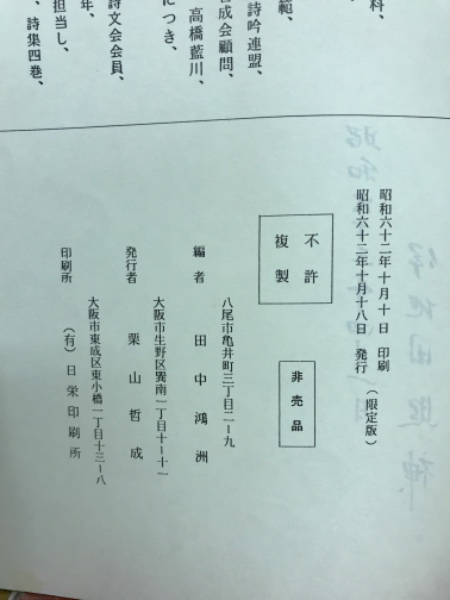 科、
範、
詩吟連盟、
成会顧問、
高橋藍川、
につき、
詩文会会員、
年、
担当し、
、詩集四巻、
昭和六十二年十月十日 印刷
昭和六十二年十月十八日 発行 (限定版)
不許
複製
非売品
八尾市亀井町三丁目二ー九
編者 田中鴻洲
大阪市生野区巽南一丁目十ー十一
発行者 栗山哲成
大阪市東成区東小橋一丁目十三ー八
印刷所 (有)日栄印刷所